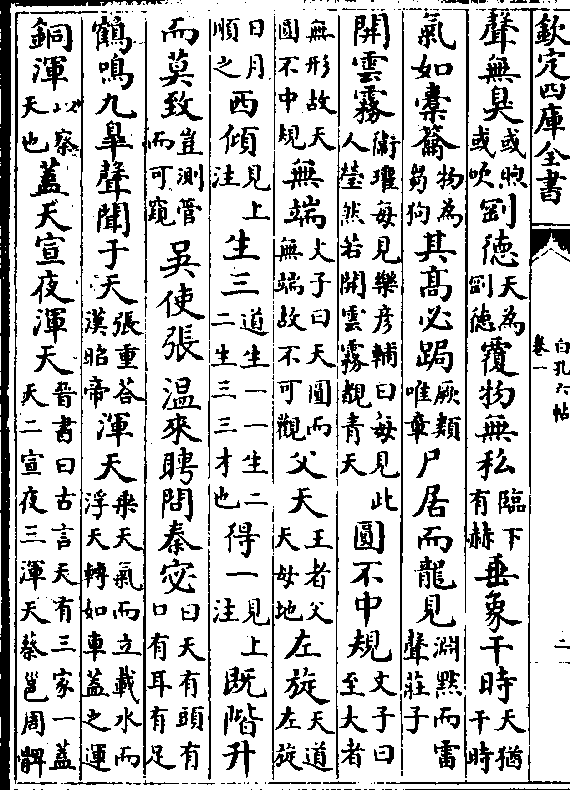 欽定四庫全書
白孔六帖
卷一
二
聲無臭或煦或吹劉德天為劉德覆物無私臨下有赫垂象干時天猶干時
氣如橐籥物為芻狗其髙必跼厥類唯章尸居而龍見淵黙而雷聲莊子
開雲霧衛瓘每見樂彦輔曰每見此人瑩然若開雲霧覩青天圓不中規文子曰至大者
無形故天圓不中規無端文子曰天圓而無端故不可觀父天王者父天母地左旋天道左旋
日月順之西傾見上注生三道生一一生二二生三三才也得一見上注既階升
而莫致豈測管而可窺吳使張温來聘問秦宓曰天有頭有口有耳有足
鶴鳴九臯聲聞于天張重答漢昭帝渾天乘天氣而立載水而浮天轉如車蓋之運
銅渾以察天也蓋天宣夜渾天晉書曰古言天有三家一蓋天二宣夜三渾天蔡邕周髀